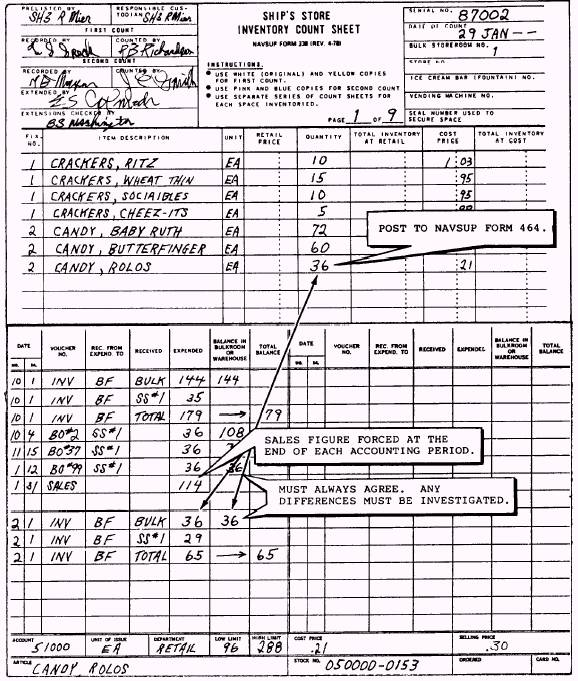 PRELISTED BY SH3 R Mier
RESPONSIBLE CUSTODIAN SH3 R Mier
SHIP'S STORE
INVENTORY COUNT SHEET
NAVSUP FORM 238 (REV. 4-78)
SERIAL NO. 87002
DATE OF COUNT 29 JAN--
BULK STOREROOM NO. 1
STORE NO.
ICE CREAM BAR (FOUNTAIN) NO.
VENDING MACHINE NO.
SEAL NUMBER USED TO SECURE SPACE
FIRST COUNT
RECORDED BY
COUNTED BY P.B. Richardson
SECOND COUNT
RECORDED BY
COUNTED BY
EXTENDED BY
EXTENSIONS CHECKED BY B.S. Washington
INSTRUCTIONS.
● USE WHITE (ORIGINAL) AND YELLOW COPIES FOR FIRST COUNT.
● USE PINK AND BLUE COPIES FOR SECOND COUNT
● USE SEPARATE SERIES OF COUNT SHEETS FOR EACH SPACE INVENTORIED.
PAGE 1 OF 9
FIX. NO. ITEM DESCRIPTION UNIT RETAIL PRICE QUANTITY TOTAL INVENTORY AT RETAIL COST PRICE TOTAL INVENTORY AT COST
1 CRACKERS, RITZ EA 10 1 03
1 CRACKERS, WHEAT THIN EA 15 95
1 CRACKERS, SOCIAIBLES EA 10 95
1 CRACKERS, CHEEZ-ITS EA 5
2 CANDY, BABY RUTH EA 72
2 CANDY, BUTTERFINGER EA 60
2 CANDY, ROLOS EA 36 21
POST TO NAVSUP FORM 464.
DATE VOUCHER NO. REC. FROM EXPEND. TO RECEIVED EXPENDED BALANCE IN BULKROOM OR WAREHOUSE TOTAL BALANCE DATE VOUCHER NO. REC. FROM EXPEND. TO RECEIVED EXPENDED BALANCE IN BULKROOM OR WAREHOUSE TOTAL BALANCE
10 1 INV BF BULK 144 144
10 1 INV BF SS#1 35
10 1 INV BF TOTAL 179 → 179
10 4 BO#2 SS#1 36 108
11 15 BO#37 SS#1 36
1 12 BO#99 SS#1 36 36
1 31 SALES 114
SALES FIGURE FORCED AT THE
END OF EACH ACCOUNTING PERIOD.
MUST ALWAYS AGREE. ANY
DIFFERENCES MUST BE INVESTIGATED.
2 1 INV BF BULK 36 36
2 1 INV BF SS#1 29
2 1 INV BF TOTAL 65 → 65
ACCOUNT 51000 UNIT OF ISSUE EA DEPARTMENT RETAIL LOW LIMIT 96 HIGH LIMIT 288 COST PRICE .21 SELLING PRICE .30
ARTICLE CANDY ROLOS STOCK NO. 050000-0153 ORDERED CARD NO.